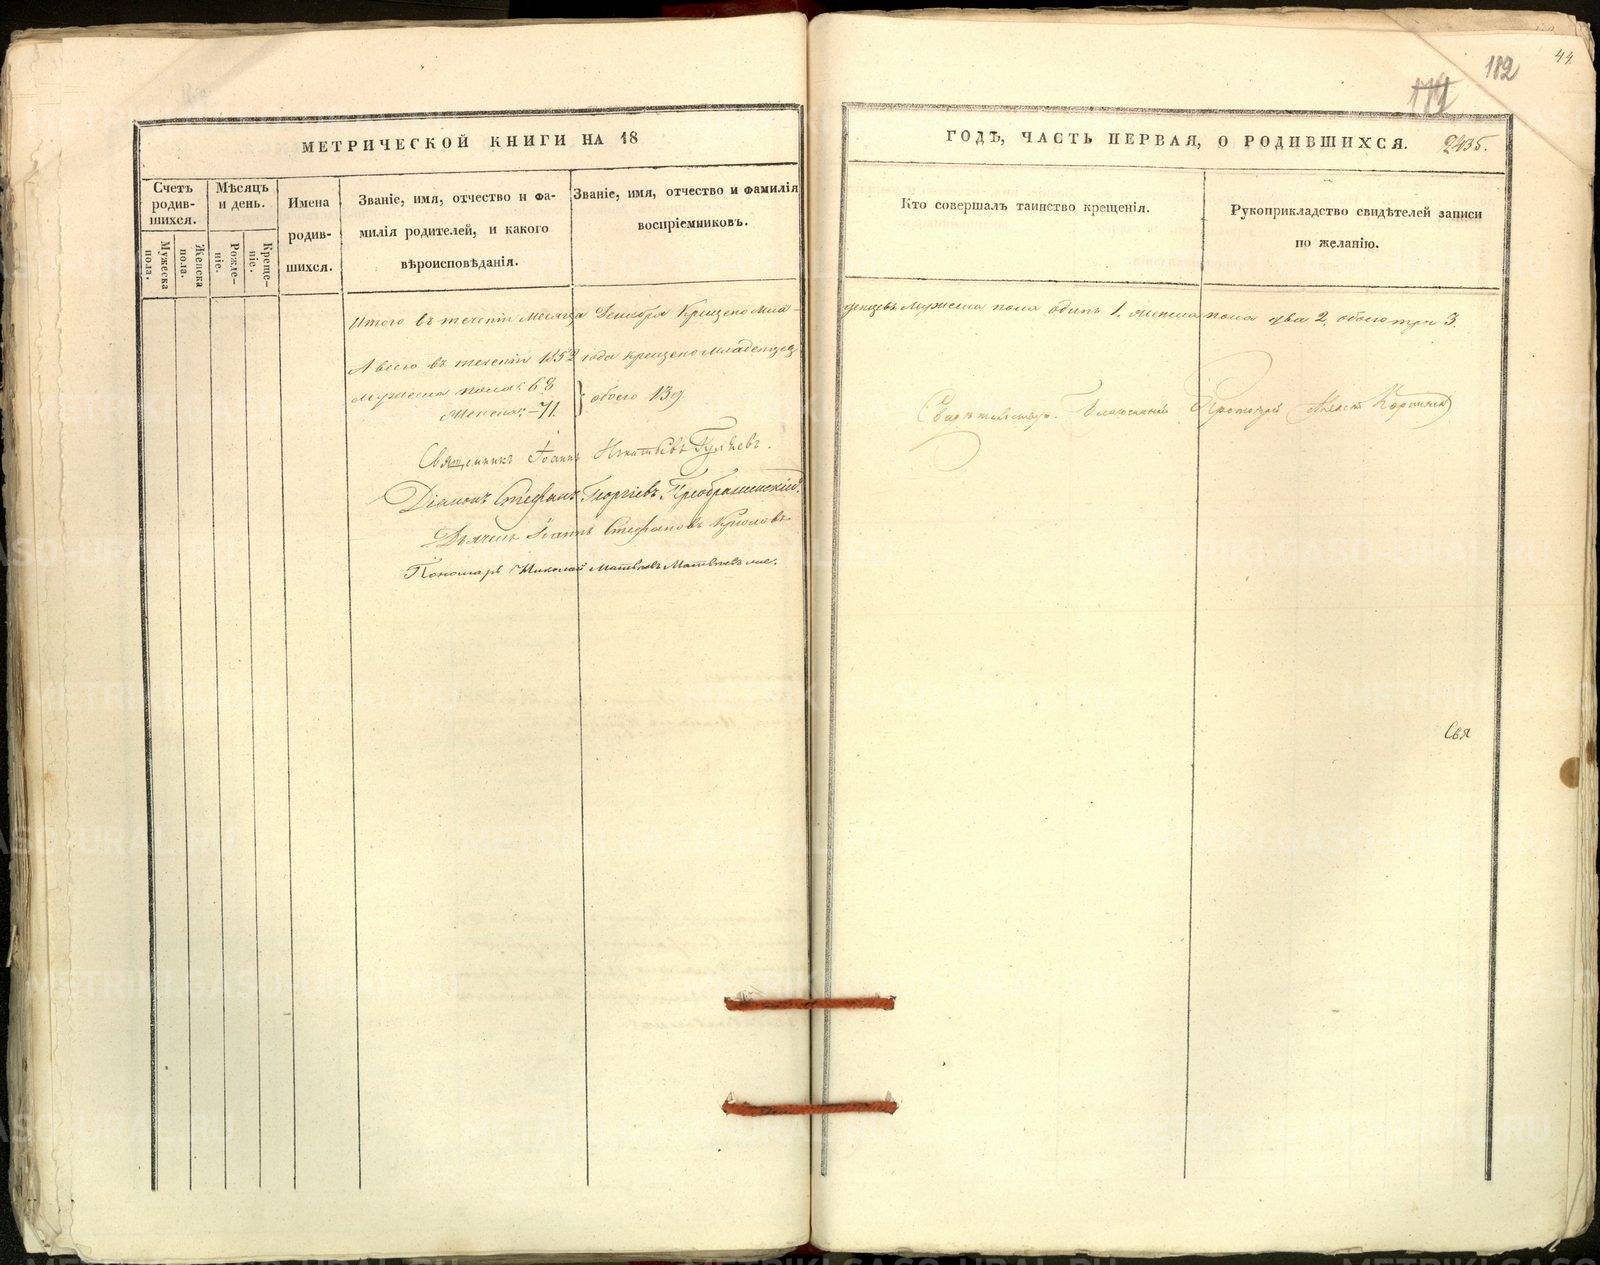 МЕТРИЧЕСКОЙ КНИГИ НА 18
Счетъ родив-шихся.
Мѣсяцъ и день.
Мужеска пола.
Женска пола.
Рожде-ніе.
Креще-ніе.
Имена родив-шихся.
Званіе, имя, отчество и фа-
милія родителей, и какого
вѣроисповѣданія.
Званіе, имя, отчество и фамилія
воспріемниковъ.
Итого въ теченіи Месяца Декабря Крещено Мла-
А всего въ теченіи 1852 года крещено Младенцев
Мужеска пола: 68
Женска: 71
обоего 139
Священникъ Іоаннъ Игнатьевъ Гуляевъ.
Діаконъ Стефанъ Георгіевъ Преображенскій
Дьячекъ Іоаннъ Стефановъ
Пономарь Николай
44.
112
182
ГОДЪ, ЧАСТЬ ПЕРВАЯ, О РОДИВШИХСЯ. 2435.
Кто совершалъ таинство крещенія.
Рукоприкладство свидѣтелей записи
по желанію.
денцевъ Мужеска пола одинъ 1. женска пола два 2. обоего три 3.
Свидѣтельств. Благочинный Протоіерей Алексѣй
Свя
METRIKI.GASO-URAL.RU